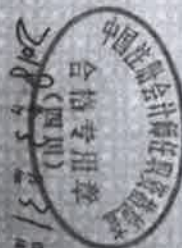 中国注册会计师任职资格检查
合格专用章
(四川)
2018
31